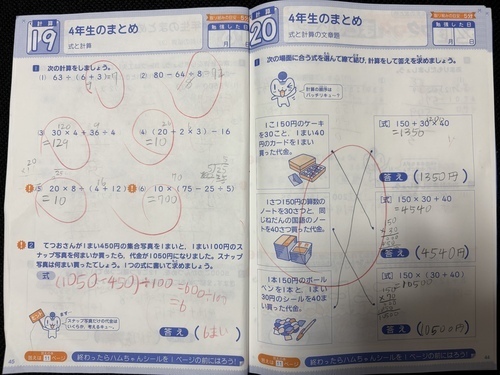 計算
19
4年生のまとめ
式と計算
勉強した日
月 日
1 次の計算をしましょう。
(1) 63÷(6+3)=7
(2) 80-64÷8
(3) 30×4+36÷4
=129
(4) (20+2×3)-16
=10
(5) 20×8÷(4+12)
=10
(6) 10×(75-25÷5)
=700
2 てつおさんが1まい450円の集合写真を1まいと、1まい100円の
スナップ写真を何まいか買ったら、代金が1050円になりました。スナッ
プ写真は何まい買ったでしょう。1つの式に書いて求めましょう。
式
(1050-450)÷100=600÷100
=6
スナップ写真だけの代金は
いくらか、考えるキュー。
答え (6まい)
終わったらハムちゃんシールを1ページの前にはろう!
計算
20
4年生のまとめ
式と計算の文章題
勉強した日
月 日
1 次の場面に合う式を選んで線で結び、計算をして答えを求めましょう。
計算の順序は
バッチリキュー?
1こ150円のケーキ
を30こと、1まい40
円のカードを1まい
買った代金。
[式] 150+30×40
=1350
答え (1350円)
1さつ150円の算数の
ノートを30さつと、同
じねだんの国語のノー
トを40さつ買った代金。
[式] 150×30+40
=4540
答え (4540円)
1本150円のボール
ペンを1本と、1まい
30円のシールを40ま
い買った代金。
[式] 150×(30+40)
=10500
答え (10500円)
終わったらハムちゃんシールを1ページの前にはろう!